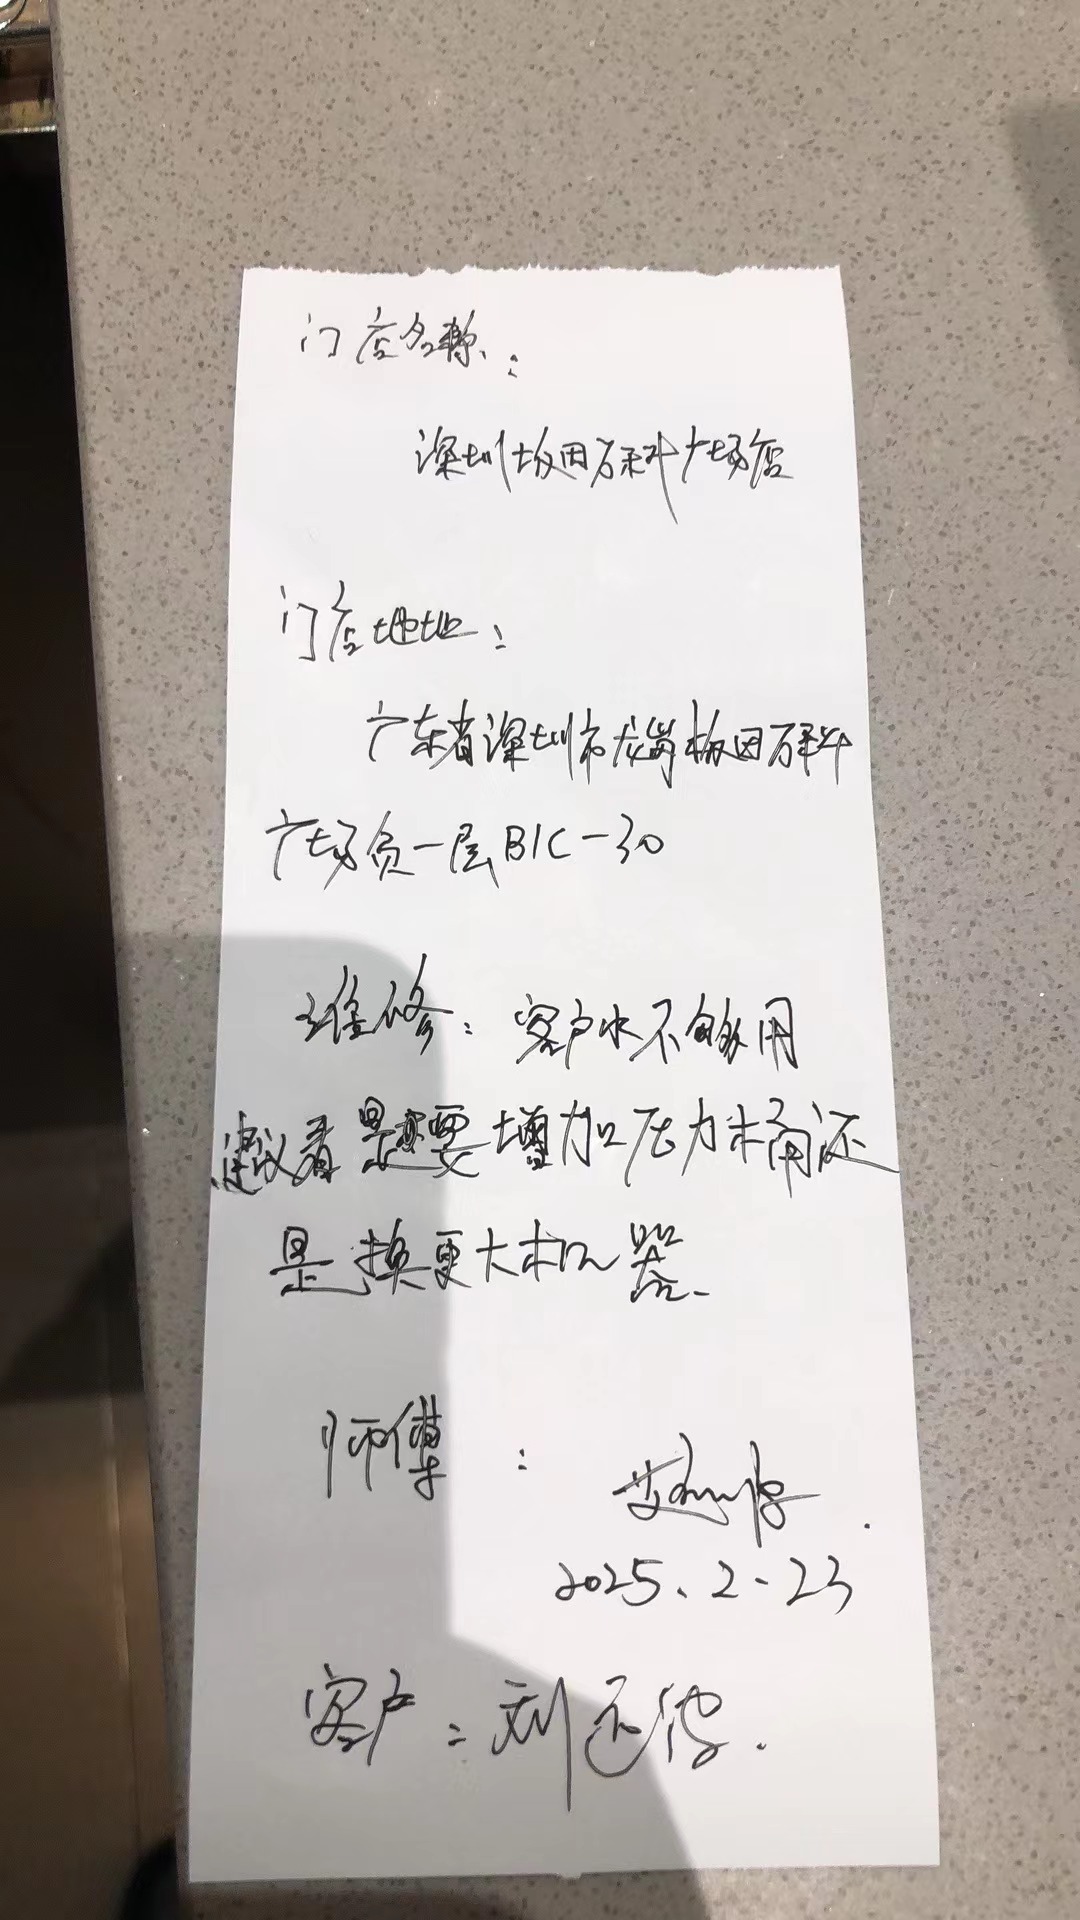 门店名称:
深圳坂田万科广场店
门店地址:
广东省深圳市龙岗坂田万科
广场负一层B1C-30
维修:客户水不够用
建议看是要增加压力桶还
是换更大机器.
师傅:
2025.2-23
客户:刘